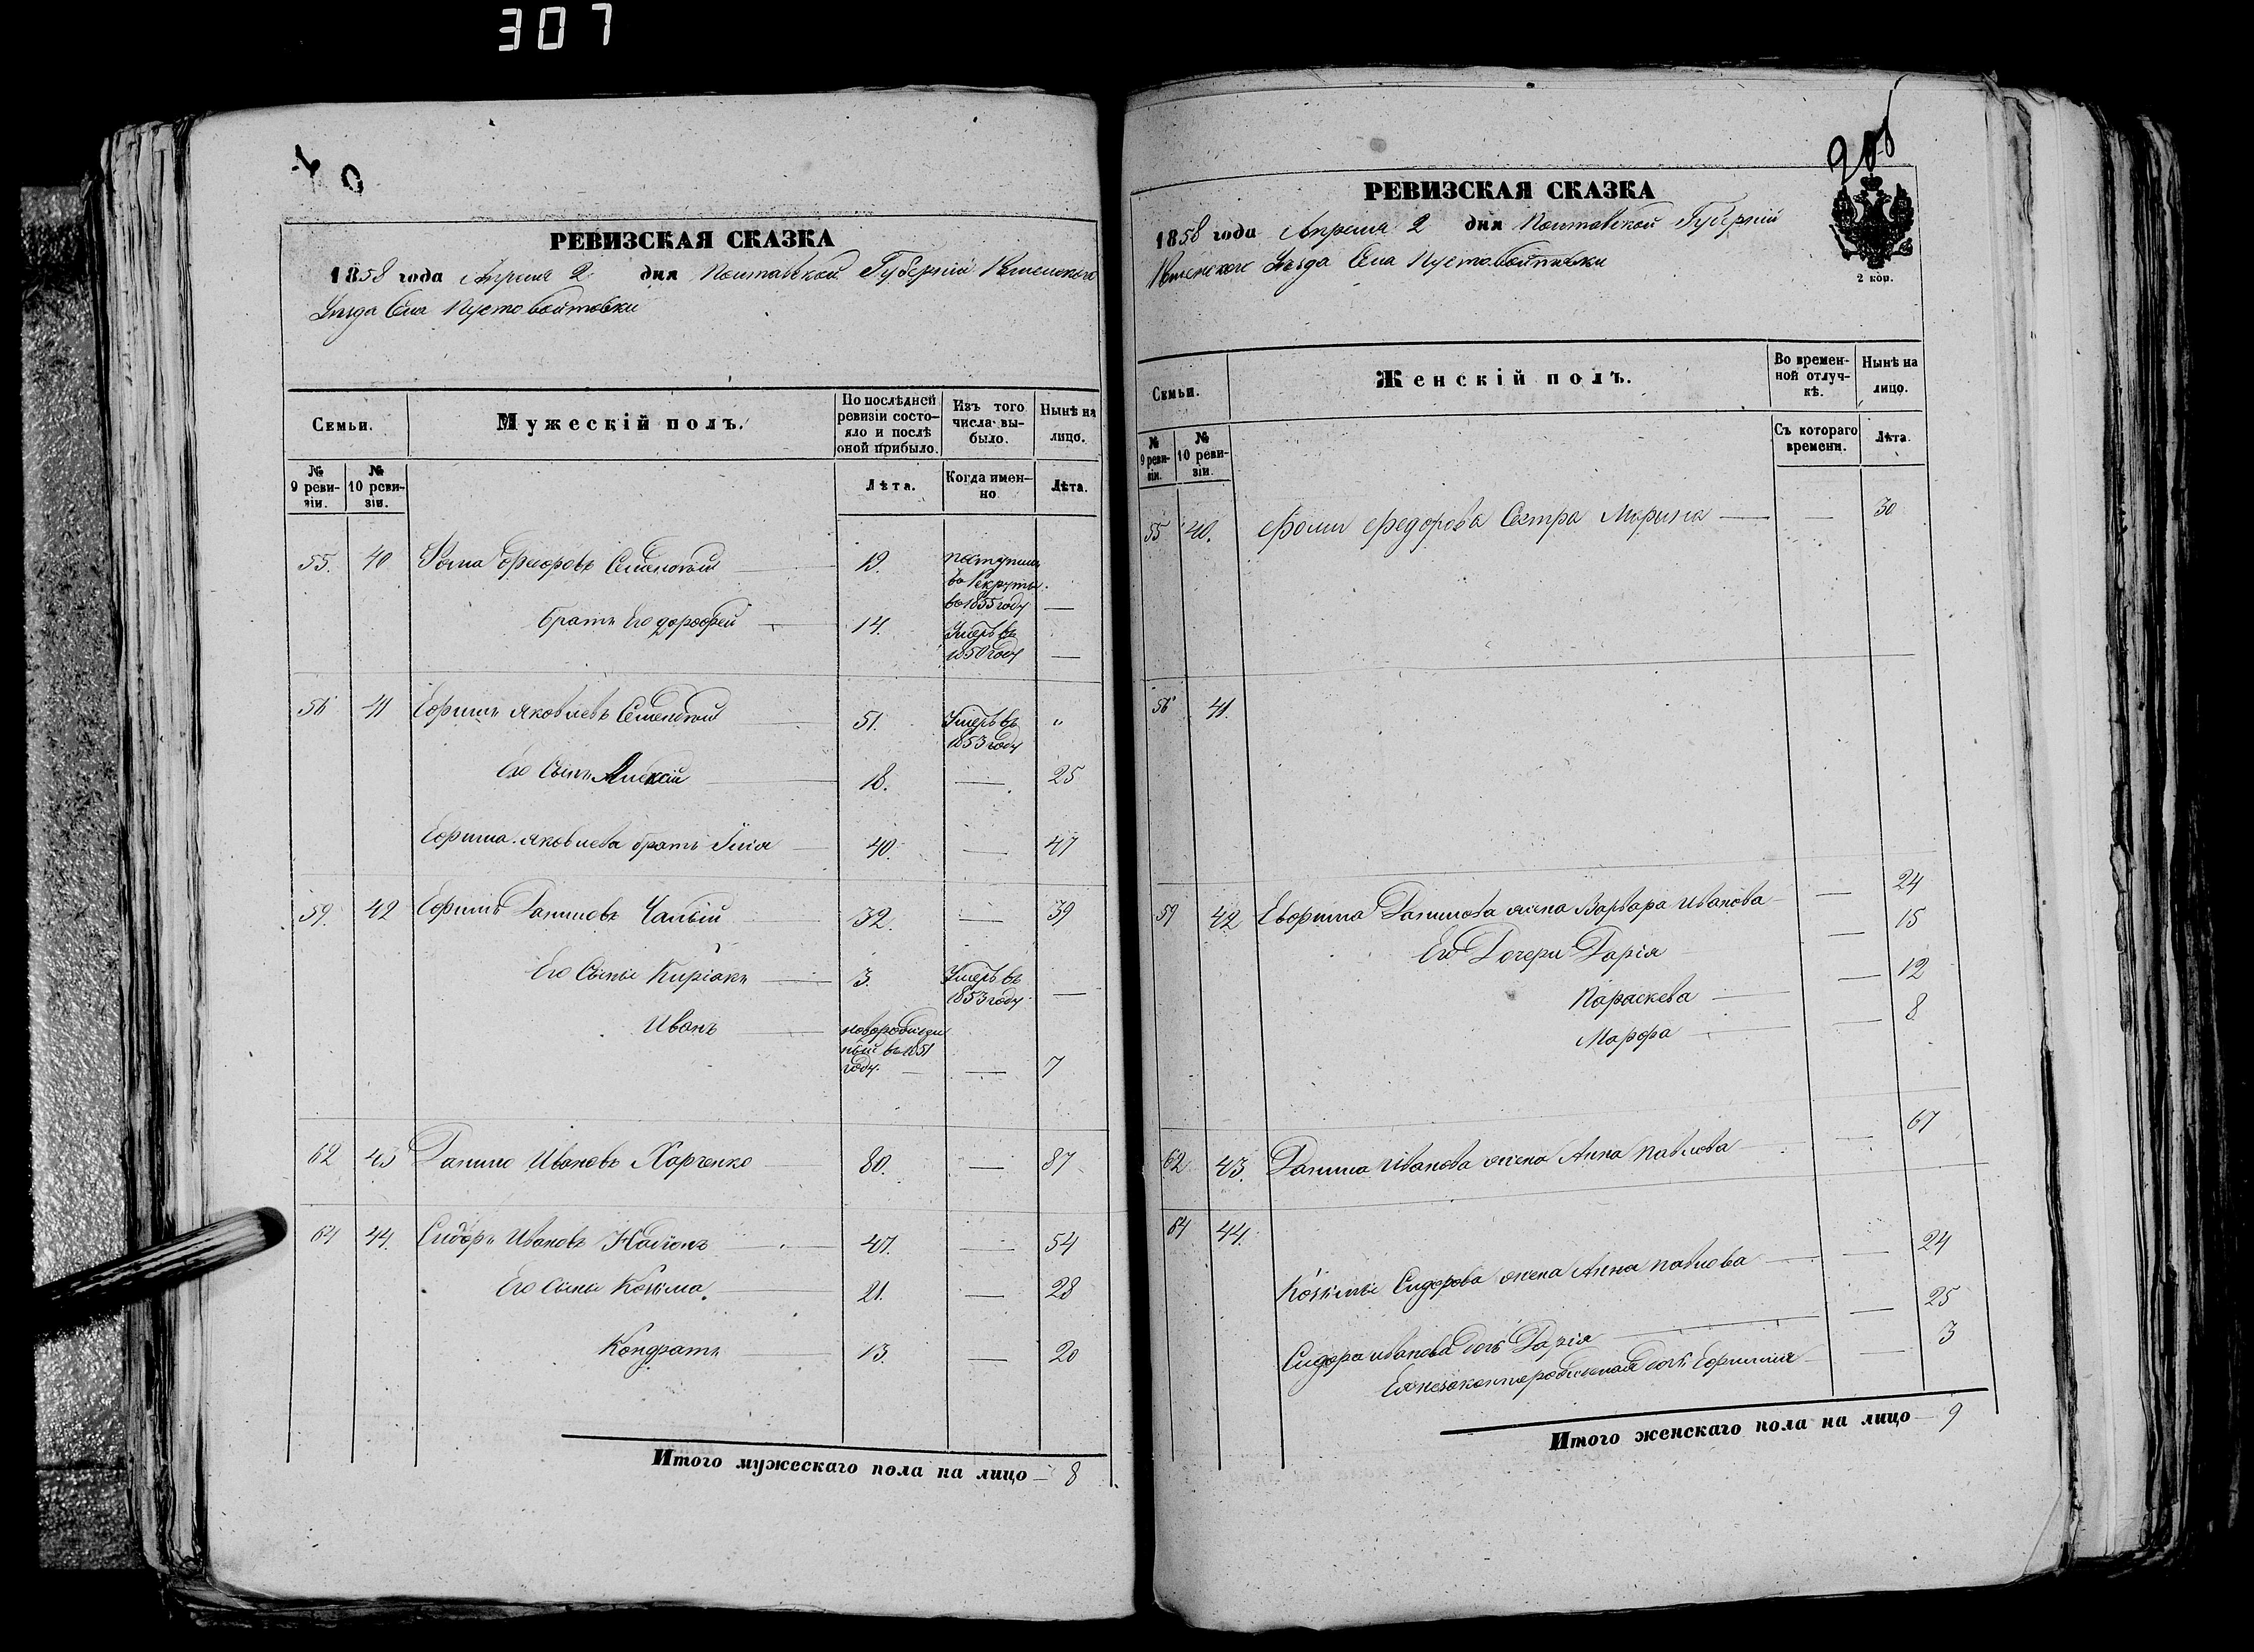 307
РЕВИЗСКАЯ СКАЗКА
1858 года Апреля 2 дня Полтавской Губерніи Роменского
Уезда Села Пустовойтовки
Семьи.
Мужескій полъ.
По послѣдней ревизіи состояло и послѣ оной прибыло.
Изъ того числа выбыло.
Нынѣ на лицо.
№ 9 ревизіи.
№ 10 ревизіи.
Лѣта.
Когда именно
Лѣта.
55. 40 Фома Федоровъ 19. поступилъ в Рекруты в 1855 году —
братъ Его Дорофей 14. Умеръ въ 1850 году —
56 41 Ефимъ Яковлевъ 51. Умеръ въ 1853 году "
Его Сынъ Алексій 18. — 25
Ефима Яковлева братъ Илія 40. — 47
59. 42 Ефимъ Даниловъ Чалый 32. — 39
Его Сынъ Киріакъ 3. Умеръ въ 1853 году —
Иванъ новорожденный въ 1851 году. — 7
62 43 Данило Ивановъ Харченко 80. — 87
64 44. Сидоръ Ивановъ 47. — 54
Его Сыны Козьма 21. — 28
Кондратъ 13. — 20
Итого мужескаго пола на лицо — 8
205
РЕВИЗСКАЯ СКАЗКА
1858 года Апреля 2 дня Полтавской Губерніи
Роменского Уезда Села Пустовойтовки
2 коп.
Семьи.
Женскій полъ.
Во временной отлучкѣ.
Нынѣ на лицо.
№ 9 ревизіи.
№ 10 ревизіи.
Съ котораго времени.
Лѣта.
55 40. Фомы Федорова Сестра Марина — — 30
56 41.
59 42 Ефима Данилова жена Варвара Иванова — 24
Его Дочери Дарія — 15
Параскева — 12
Марфа — 8
62 43. Данила Иванова жена Анна Павлова — 67
64 44.
Козьмы Сидорова жена Анна Павлова — 24
Сидора Иванова дочь Дарія — 25
Ея незаконнорожденная дочь Ефимія — 3
Итого женскаго пола на лицо — 9